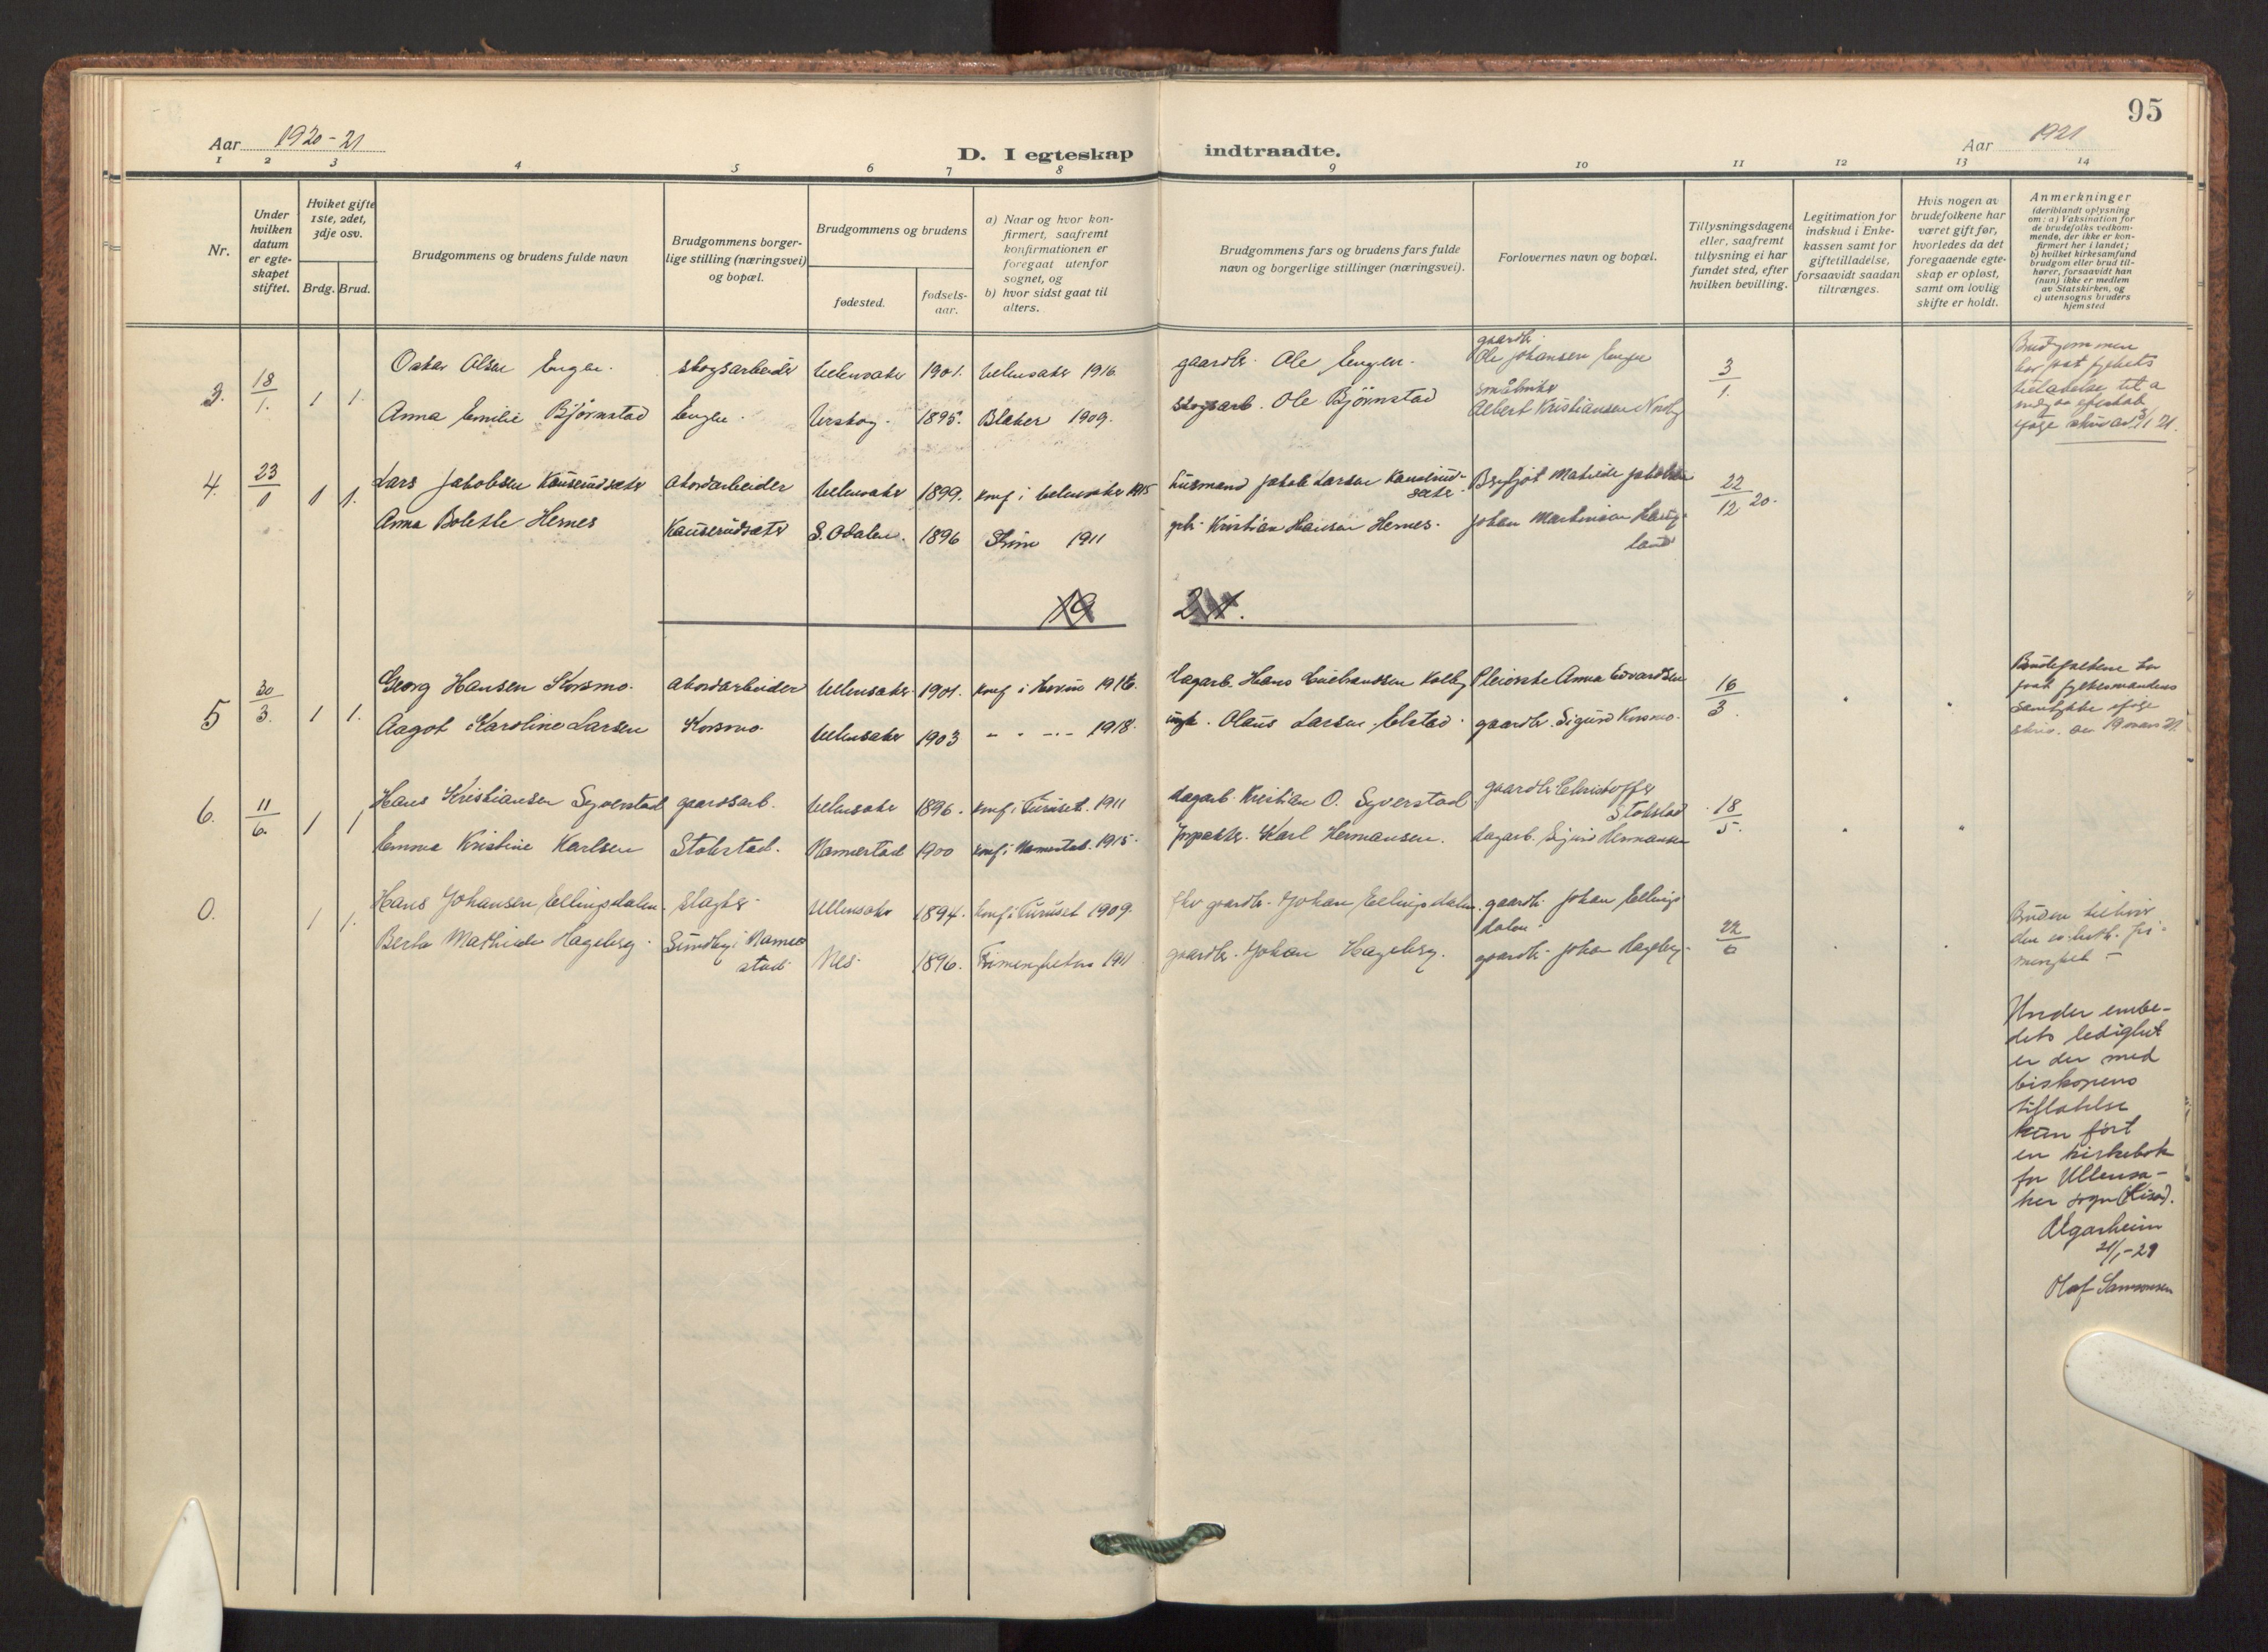 95
Aar 1920-21
D. I egteskap indtraadte.
Aar 1921
1 2 3 4 5 6 7 8 9 10 11 12 13 14
Nr.
Under hvilken datum er egte-skapet stiftet.
Hviket gifte 1ste, 2det, 3dje osv.
Brdg. Brud.
Brudgommens og brudens fulde navn
Brudgommens borger-
lige stilling (næringsvei)
og bopæl.
Brudgommens og brudens
fødested.
fødsels-
aar.
a) Naar og hvor kon-
firmert, saafremt
konfirmationen er
foregaat utenfor
sognet, og
b) hvor sidst gaat til
alters.
Brudgommens fars og brudens fars fulde
navn og borgerlige stillinger (næringsvei).
Forlovernes navn og bopæl.
Tillysningsdagene
eller, saafremt
tillysning ei har
fundet sted, efter
hvilken bevilling.
Legitimation for
indskud i Enke-
kassen samt for
giftetilladelse,
forsaavidt saadan
tiltrænges.
Hvis nogen av
brudefolkene har
været gift før,
hvorledes da det
foregaaende egte-
skap er opløst,
samt om lovlig
skifte er holdt.
Anmerkninger
(deriblandt oplysning
om: a) Vaksination for
de brudefolks vedkom-
mende, der ikke er kon-
firmert her i landet;
b) hvilket kirkesamfund
brudgom eller brud til-
hører, forsaavidt han
(hun) ikke er medlem
av Statskirken, og
c) utensogns bruders
hjemsted
3. 18/1. 1 1 Oskar Olsen Engen. skogsarbeider Ullensaker 1901. Ullensaker 1916. gaardbr. Ole Engen. gaardbr. Ole Johansen Engen 3/1.
Anna Emilie Bjørnstad Engen. Urskog. 1895. Blaker 1909. skogsarb. Ole Bjørnstad småbruker Albert Kristiansen Nordby
Brudgommen
har faat fylkets
tilladelse til a
indgaa egteskab
ifølge skriv av 3/1 21.
4. 23/1 1 1. Lars Jakobsen Kauserudsæter Akordarbeider Ullensaker 1899. konf i Ullensaker 1915 husmand Jakob Larsen Kauserud-
sæter. Bergljot Matilde Jakobsen 22/12 20.
Anna Bolette Hernes Kauserudsæter S. Odalen. 1896 Strøm 1911 gbr. Kristian Hansen Hernes. Johan Martinsen Haug-
land
19 21.
5 30/3. 1 1. Georg Hansen Korsmo. akordarbeider Ullensaker 1901. konf i Hovin 1916. dagarb. Hans Gulbrandsen Kolby Pleierske Anna Edvardsen 16/3.
Aagot Karoline Larsen Korsmo. Ullensaker 1903 - " - - 1918. Olaus Larsen Elstad. gaardbr. Sigurd Korsmo.
Brudefolkene har
faat fylkesmandens
samtykke ifølge
skriv. av 19 mars 21.
6. 11/6. 1 1 Hans Kristiansen Syverstad gaardsarb. Ullensaker 1896. konf i Furuset. 1911 dagarb. Kristian O. Syverstad gaardbr Christoffer
Stokstad 18/5.
Emma Kristine Karlsen Stokstad. Nannestad 1900 konf i Nannestad. 1915. forpakter. Karl Hermansen. dagarb. Sigurd Hermansen
0. 1 1. Hans Johansen Ellingsdalen. slagter. Ullensaker 1894. konf i Furuset 1909. fhv gaardbr. Johan Ellingsdalen. gaardbr. Johan Ellings-
dalen.
Berta Mathilde Hageberg. Sundby i Nanne
stad. Nes. 1896. Frimenigheten 1911. gaardbr. Johan Hageberg. gaardbr. Johan Hageberg. 22/6
Bruden tilhører
den ev. luth. fri-
menighet -
Under embe-
dets ledighet
er der med
biskopens
tillatelse
kun ført
en kirkebok
for Ullensa-
ker sogn (Kisa).
Algarheim
21/1-29
Olaf Samsonsen